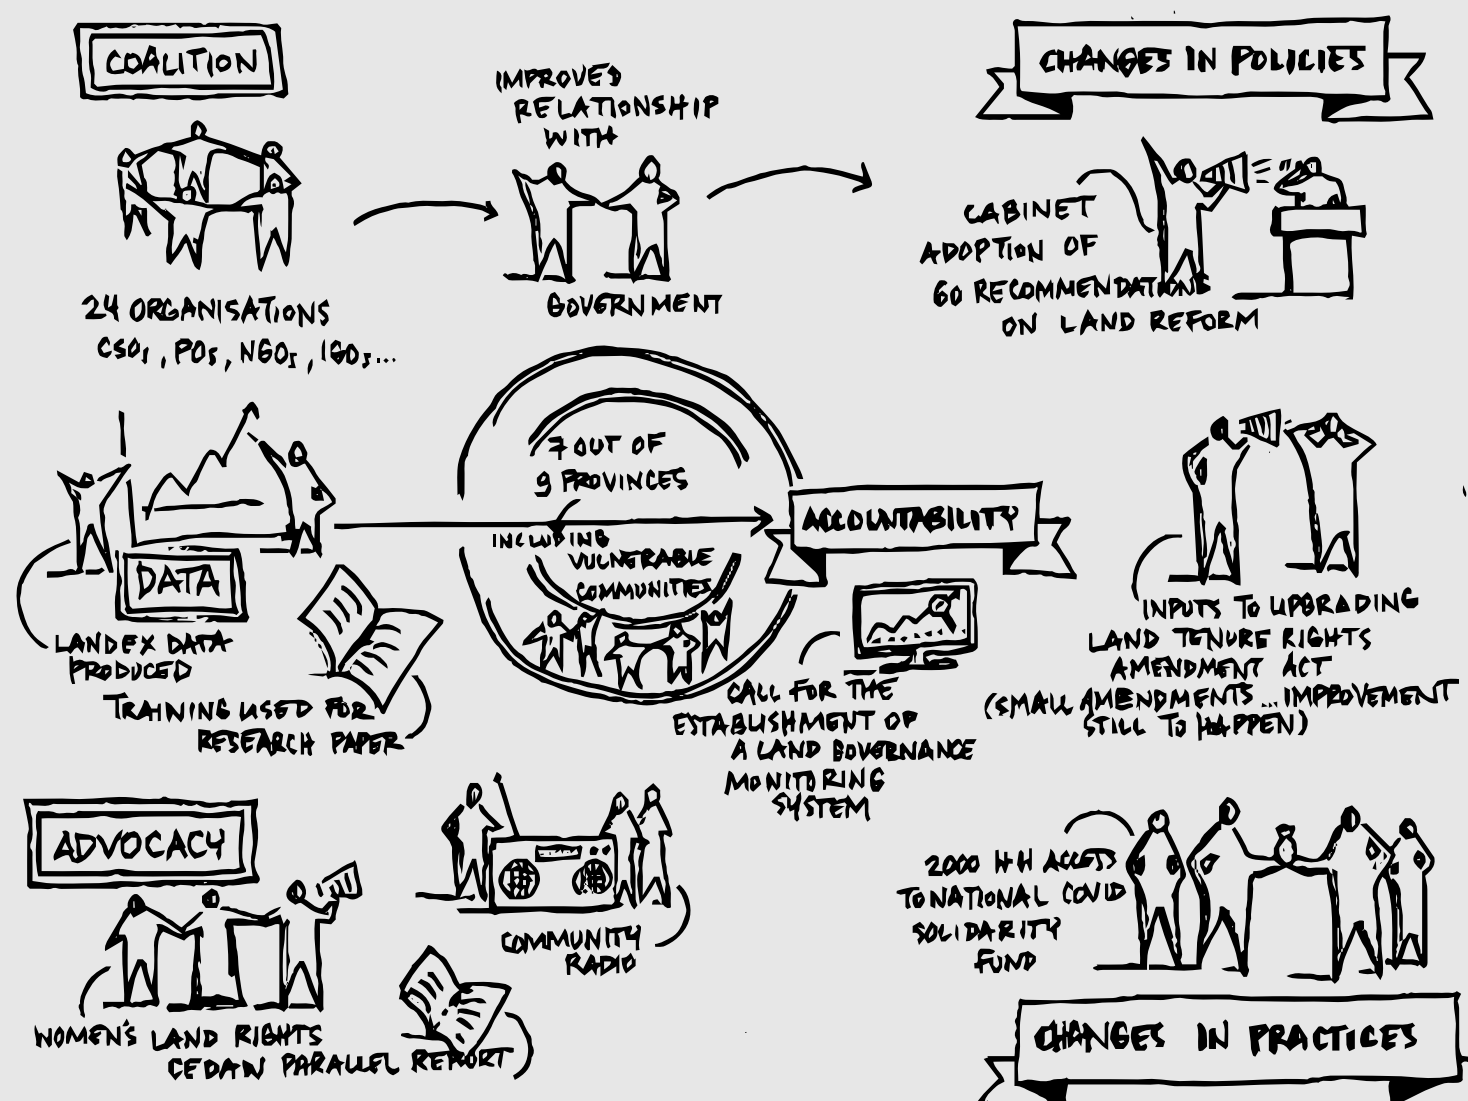 COALITION
24 ORGANISATIONS
CSOs, POs, NGOs, IGOs...
IMPROVED
RELATIONSHIP
WITH
GOVERNMENT
CHANGES IN POLICIES
CABINET
ADOPTION OF
60 RECOMMENDATIONS
ON LAND REFORM
DATA
LANDEX DATA
PRODUCED
TRAINING USED FOR
RESEARCH PAPER
7 OUT OF
9 PROVINCES
INCLUDING
VULNERABLE
COMMUNITIES
ACCOUNTABILITY
CALL FOR THE
ESTABLISHMENT OF
A LAND GOVERNANCE
MONITORING
SYSTEM
INPUTS TO UPGRADING
LAND TENURE RIGHTS
AMENDMENT ACT
(SMALL AMENDMENTS... IMPROVEMENT
STILL TO HAPPEN)
ADVOCACY
WOMEN'S LAND RIGHTS
CEDAW PARALLEL REPORT
COMMUNITY
RADIO
2000 HH ACCESS
TO NATIONAL COVID
SOLIDARITY
FUND
CHANGES IN PRACTICES